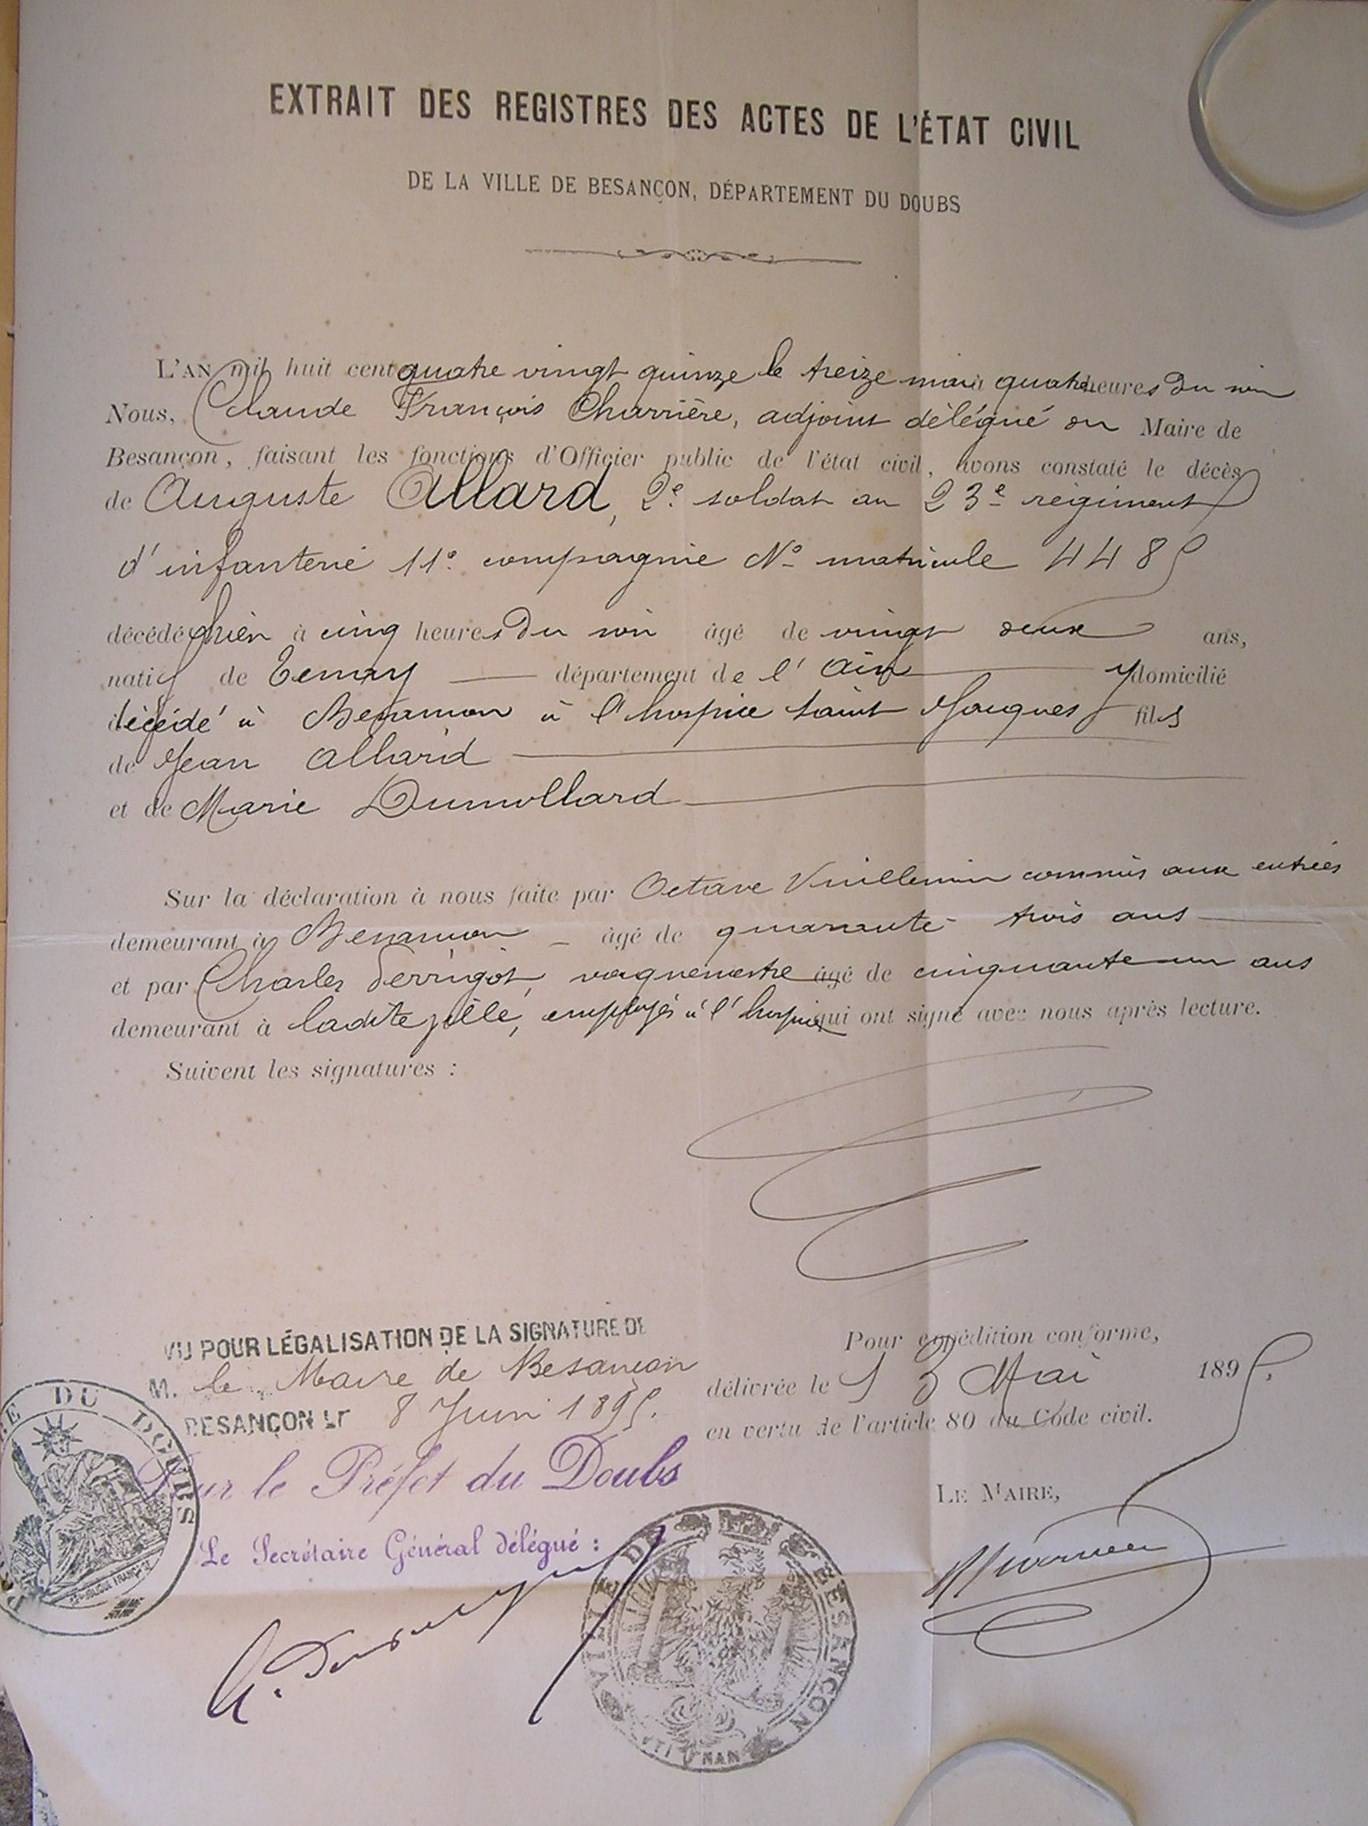 EXTRAIT DES REGISTRES DES ACTES DE L'ÉTAT CIVIL
DE LA VILLE DE BESANÇON, DÉPARTEMENT DU DOUBS
L'AN mil huit cent quatre vingt quinze le treize mai à quatre heures du soir
Nous, Claude François Charrière, adjoint délégué du Maire de
Besançon, faisant les fonctions d'Officier public de l'état civil, avons constaté le décès
de Auguste Allard, 2e soldat au 23e régiment
d'infanterie 11e compagnie No matricule 4485
décédé hier à cinq heures du soir âgé de vingt deux ans,
natif de Tenay département de l'Ain y domicilié
décédé à Besançon à l'hospice Saint Jacques fils
de Jean Allard
et de Marie Dumollard
Sur la déclaration à nous faite par Octave Vuillemin commis aux entrées
demeurant à Besançon âgé de quarante trois ans
et par Charles Perrigot, vaguemestre âgé de cinquante un ans
demeurant à ladite ville, employés à l'hospice qui ont signé avec nous après lecture.
Suivent les signatures :
VU POUR LÉGALISATION DE LA SIGNATURE DE
M. le Maire de Besançon
BESANÇON LE 8 Juin 1895.
Pour le Préfet du Doubs
Le Secrétaire Général délégué :
Pour expédition conforme,
délivrée le 13 Mai 1895.
en vertu de l'article 80 du Code civil.
LE MAIRE,
DU DOUBS
RÉPUBLIQUE FRANÇAISE
VILLE DE BESANÇON
UTINAM